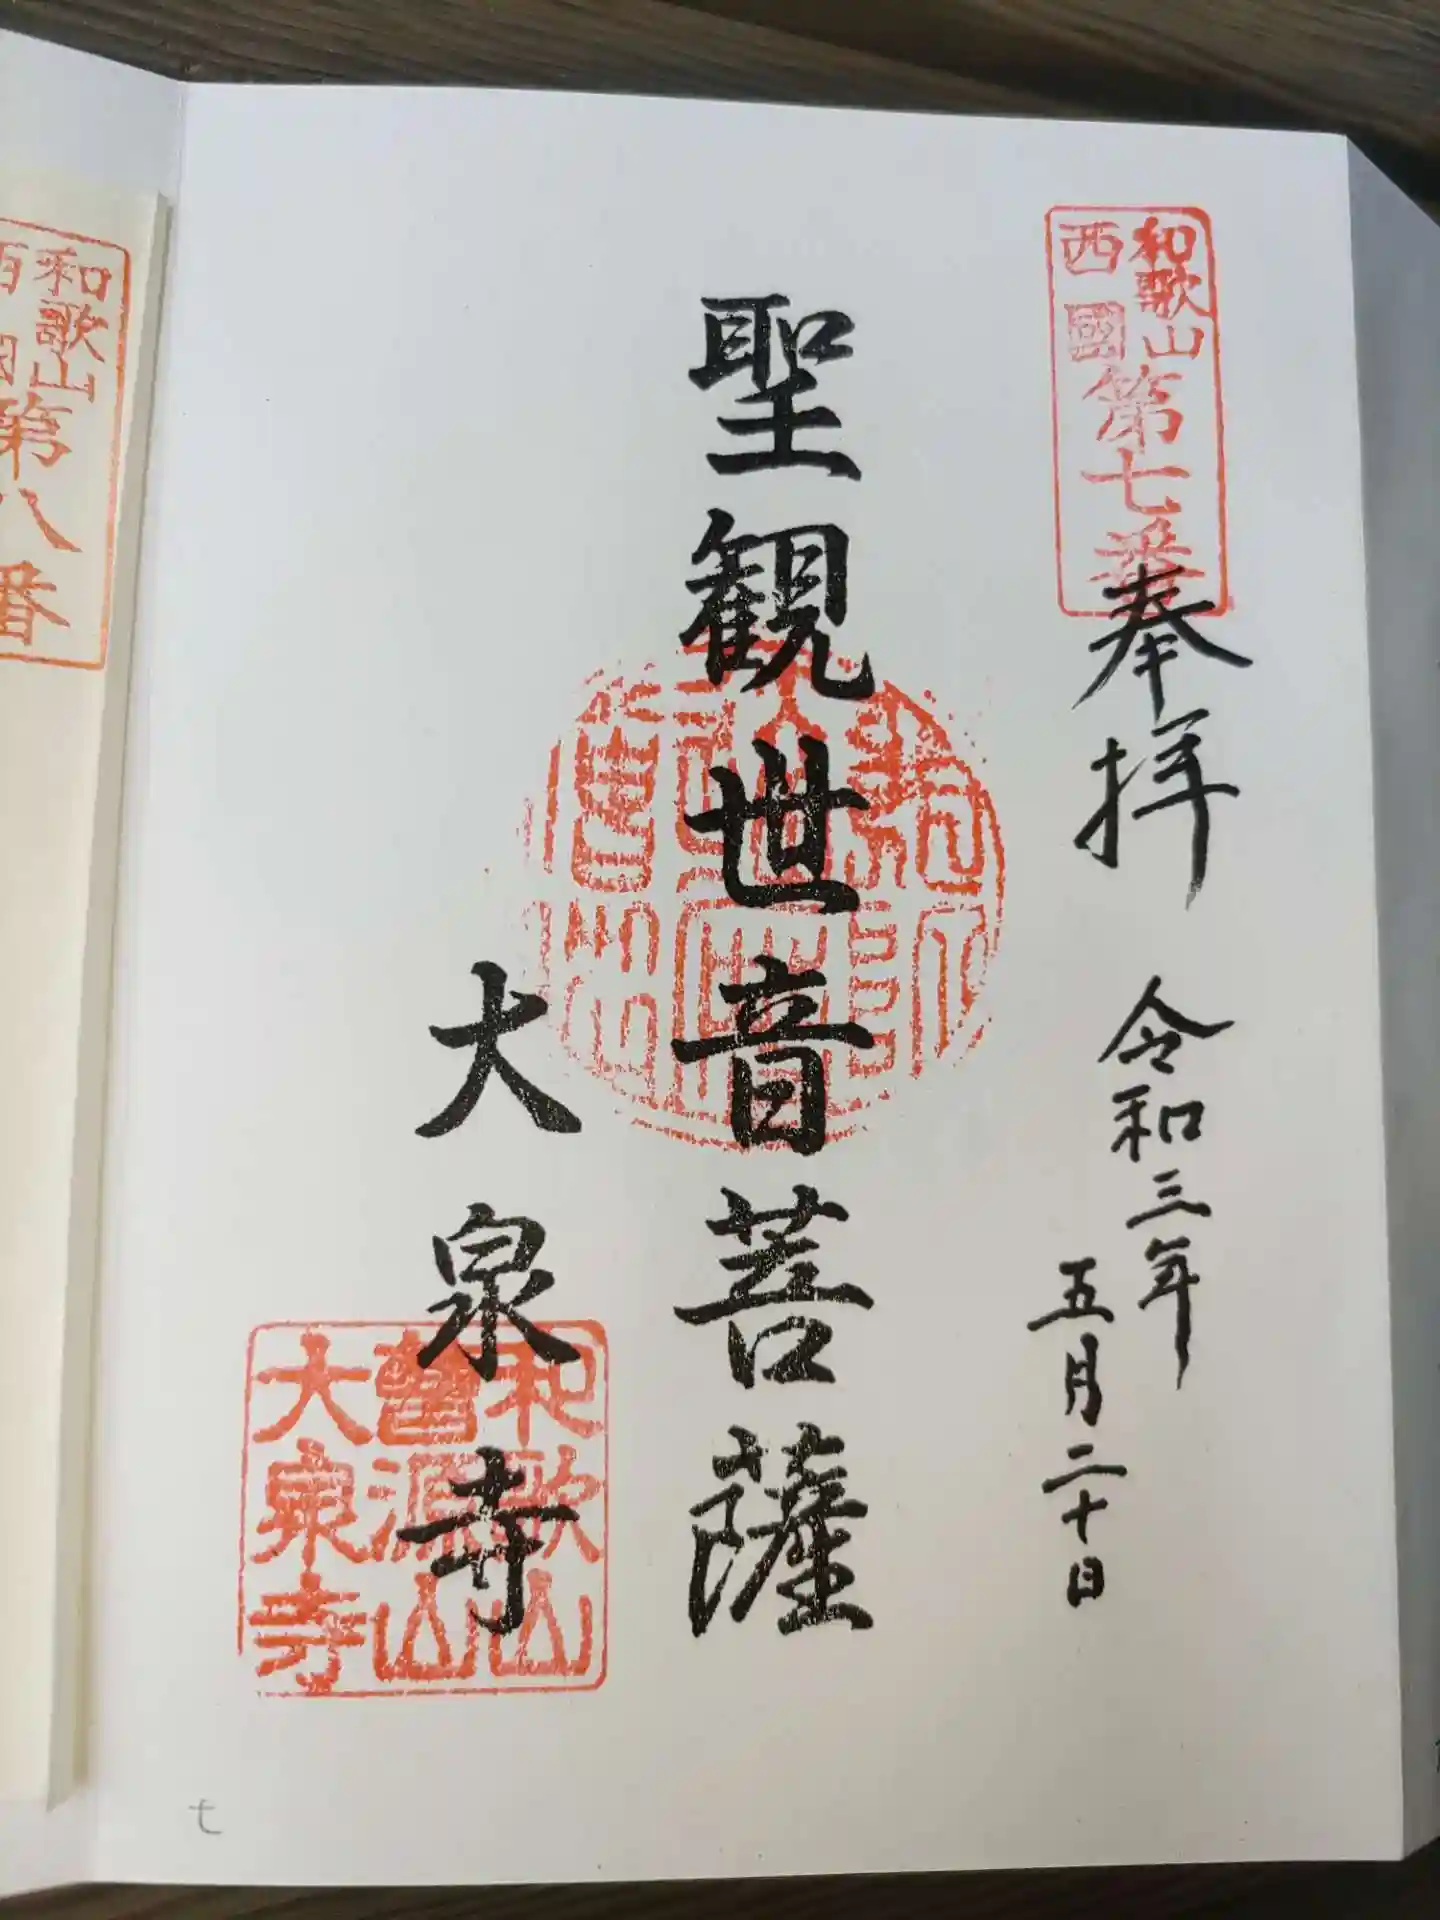 和歌山
西國
第七番
奉拝
令和三年
五月二十日
聖観世音菩薩
大泉寺
和歌山
曹源山
大泉寺
七
和歌山
第八番